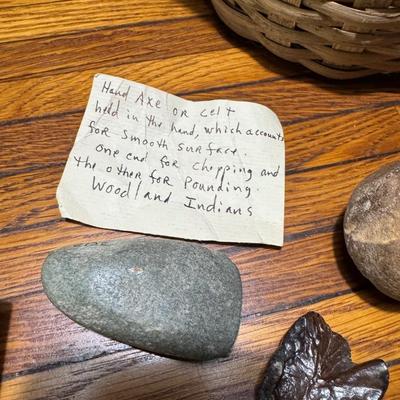 Hand Axe or celt
held in the hand, which accounts
for smooth surface.
one end for chopping and
the other for pounding.
Woodland Indians